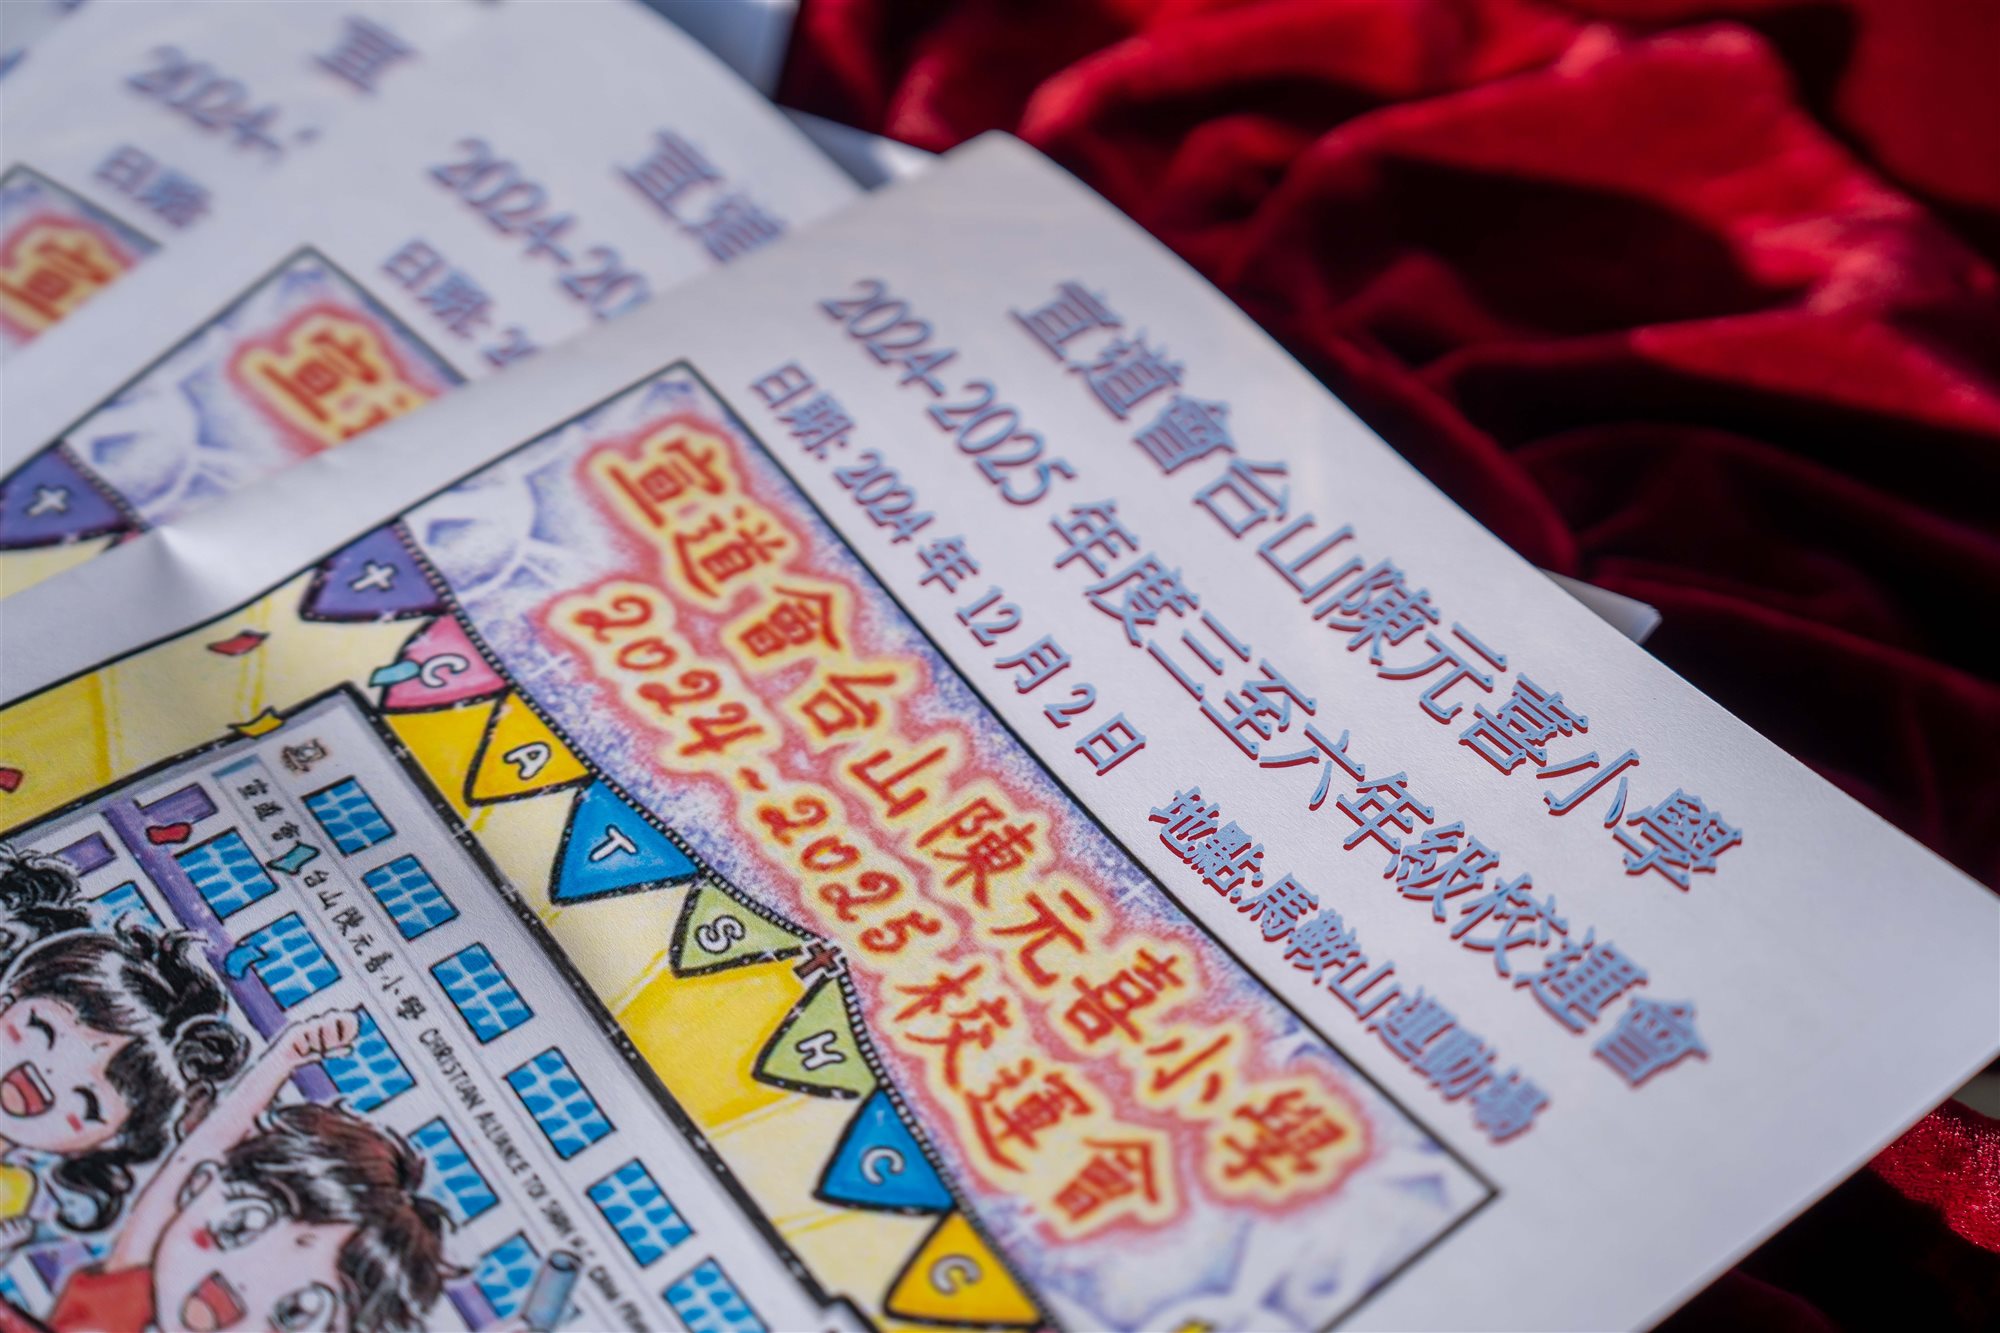 宣道會台山陳元喜小學
2024-2025 年度三至六年級校運會
日期: 2024 年 12 月 2 日 地點:馬鞍山運動場
宣道會台山陳元喜小學
2024-2025校運會
C A T S H C C
宣道會台山陳元喜小學 CHRISTIAN ALLIANCE TOI SHAN H.C. CHAN PRIM
宣道
2024-20
日期: 2
宣
2024-2
日期
宣道
宣